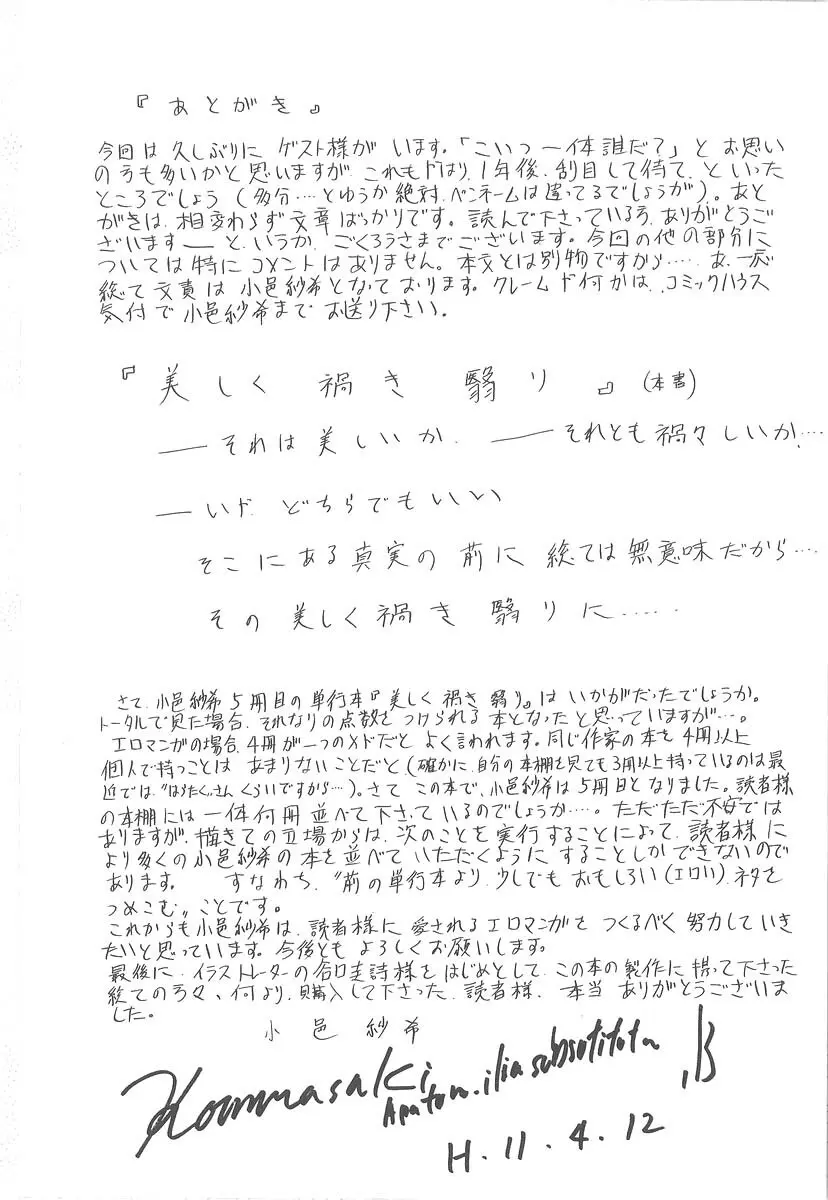 『あとがき』
今回は久しぶりにゲスト様がいます。「こいつ一体誰だ?」とお思い
の方も多いかと思いますが、これもやはり、1年後、刮目して待て、といった
ところでしょう(多分‥‥とゆうか絶対、ペンネームは違ってるでしょうが)。あと
がきは、相変わらず文章ばっかりです。読んで下さっている方、ありがとうご
ざいます──と、いうか、ごくろうさまでございます。今回の他の部分に
ついては特にコメントはありません。本文とは別物ですから‥‥。あ、一応
総て文責は小邑紗希となっております。クレームや何かは、コミックハウス
気付で小邑紗希までお送り下さい。
『美しく禍き翳り』(本書)
──それは美しいか、──それとも禍々しいか、‥‥
──いや、どちらでもいい
そこにある真実の前に総ては無意味だから‥‥
その美しく禍き翳りに‥‥‥
さて、小邑紗希5冊目の単行本『美しく禍き翳り』はいかがだったでしょうか。
トータルで見た場合、それなりの点数をつけられる本となったと思っていますが‥‥。
エロマンガの場合、4冊が一つのメドだとよく言われます。同じ作家の本を4冊以上
個人で持つことはあまりないことだと(確かに、自分の本棚を見ても3冊以上持っているのは最
近では さんくらいですから‥‥)。さて、この本で、小邑紗希は5冊目となりました。読者様
の本棚には一体何冊並べて下さっているのでしょうか‥‥。ただただ不安では
ありますが、描きての立場からは、次のことを実行することによって、読者様に
より多くの小邑紗希の本を並べていただくようにすることしかできないので
あります。 すなわち、〝前の単行本より、少しでもおもしろい(エロい)ネタを
つめこむ〟ことです。
これからも小邑紗希は、読者様に愛されるエロマンガをつくるべく努力していき
たいと思っています。今後ともよろしくお願いします。
最後に、イラストレーターの 様をはじめとして、この本の製作に携って下さった
総ての方々、何より、購入して下さった、読者様、本当ありがとうございま
した。
小邑紗希
Kommasaki
H.11.4.12